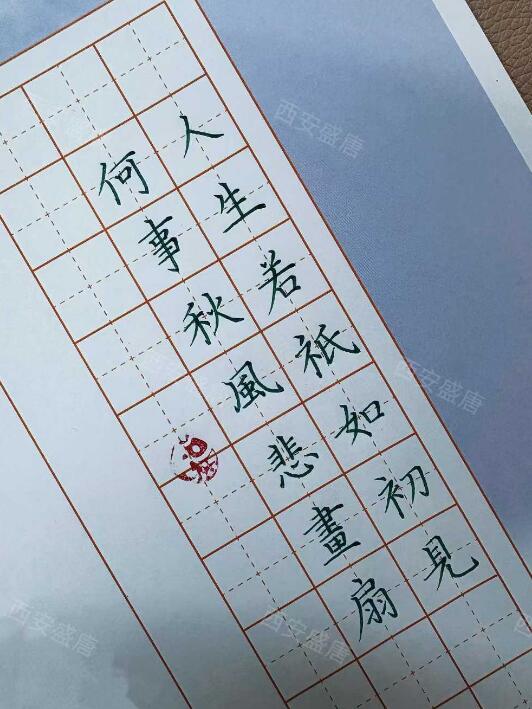 人生若祇如初見
何事秋風悲畫扇
西安盛唐
西安盛唐
西安盛唐
西安盛唐